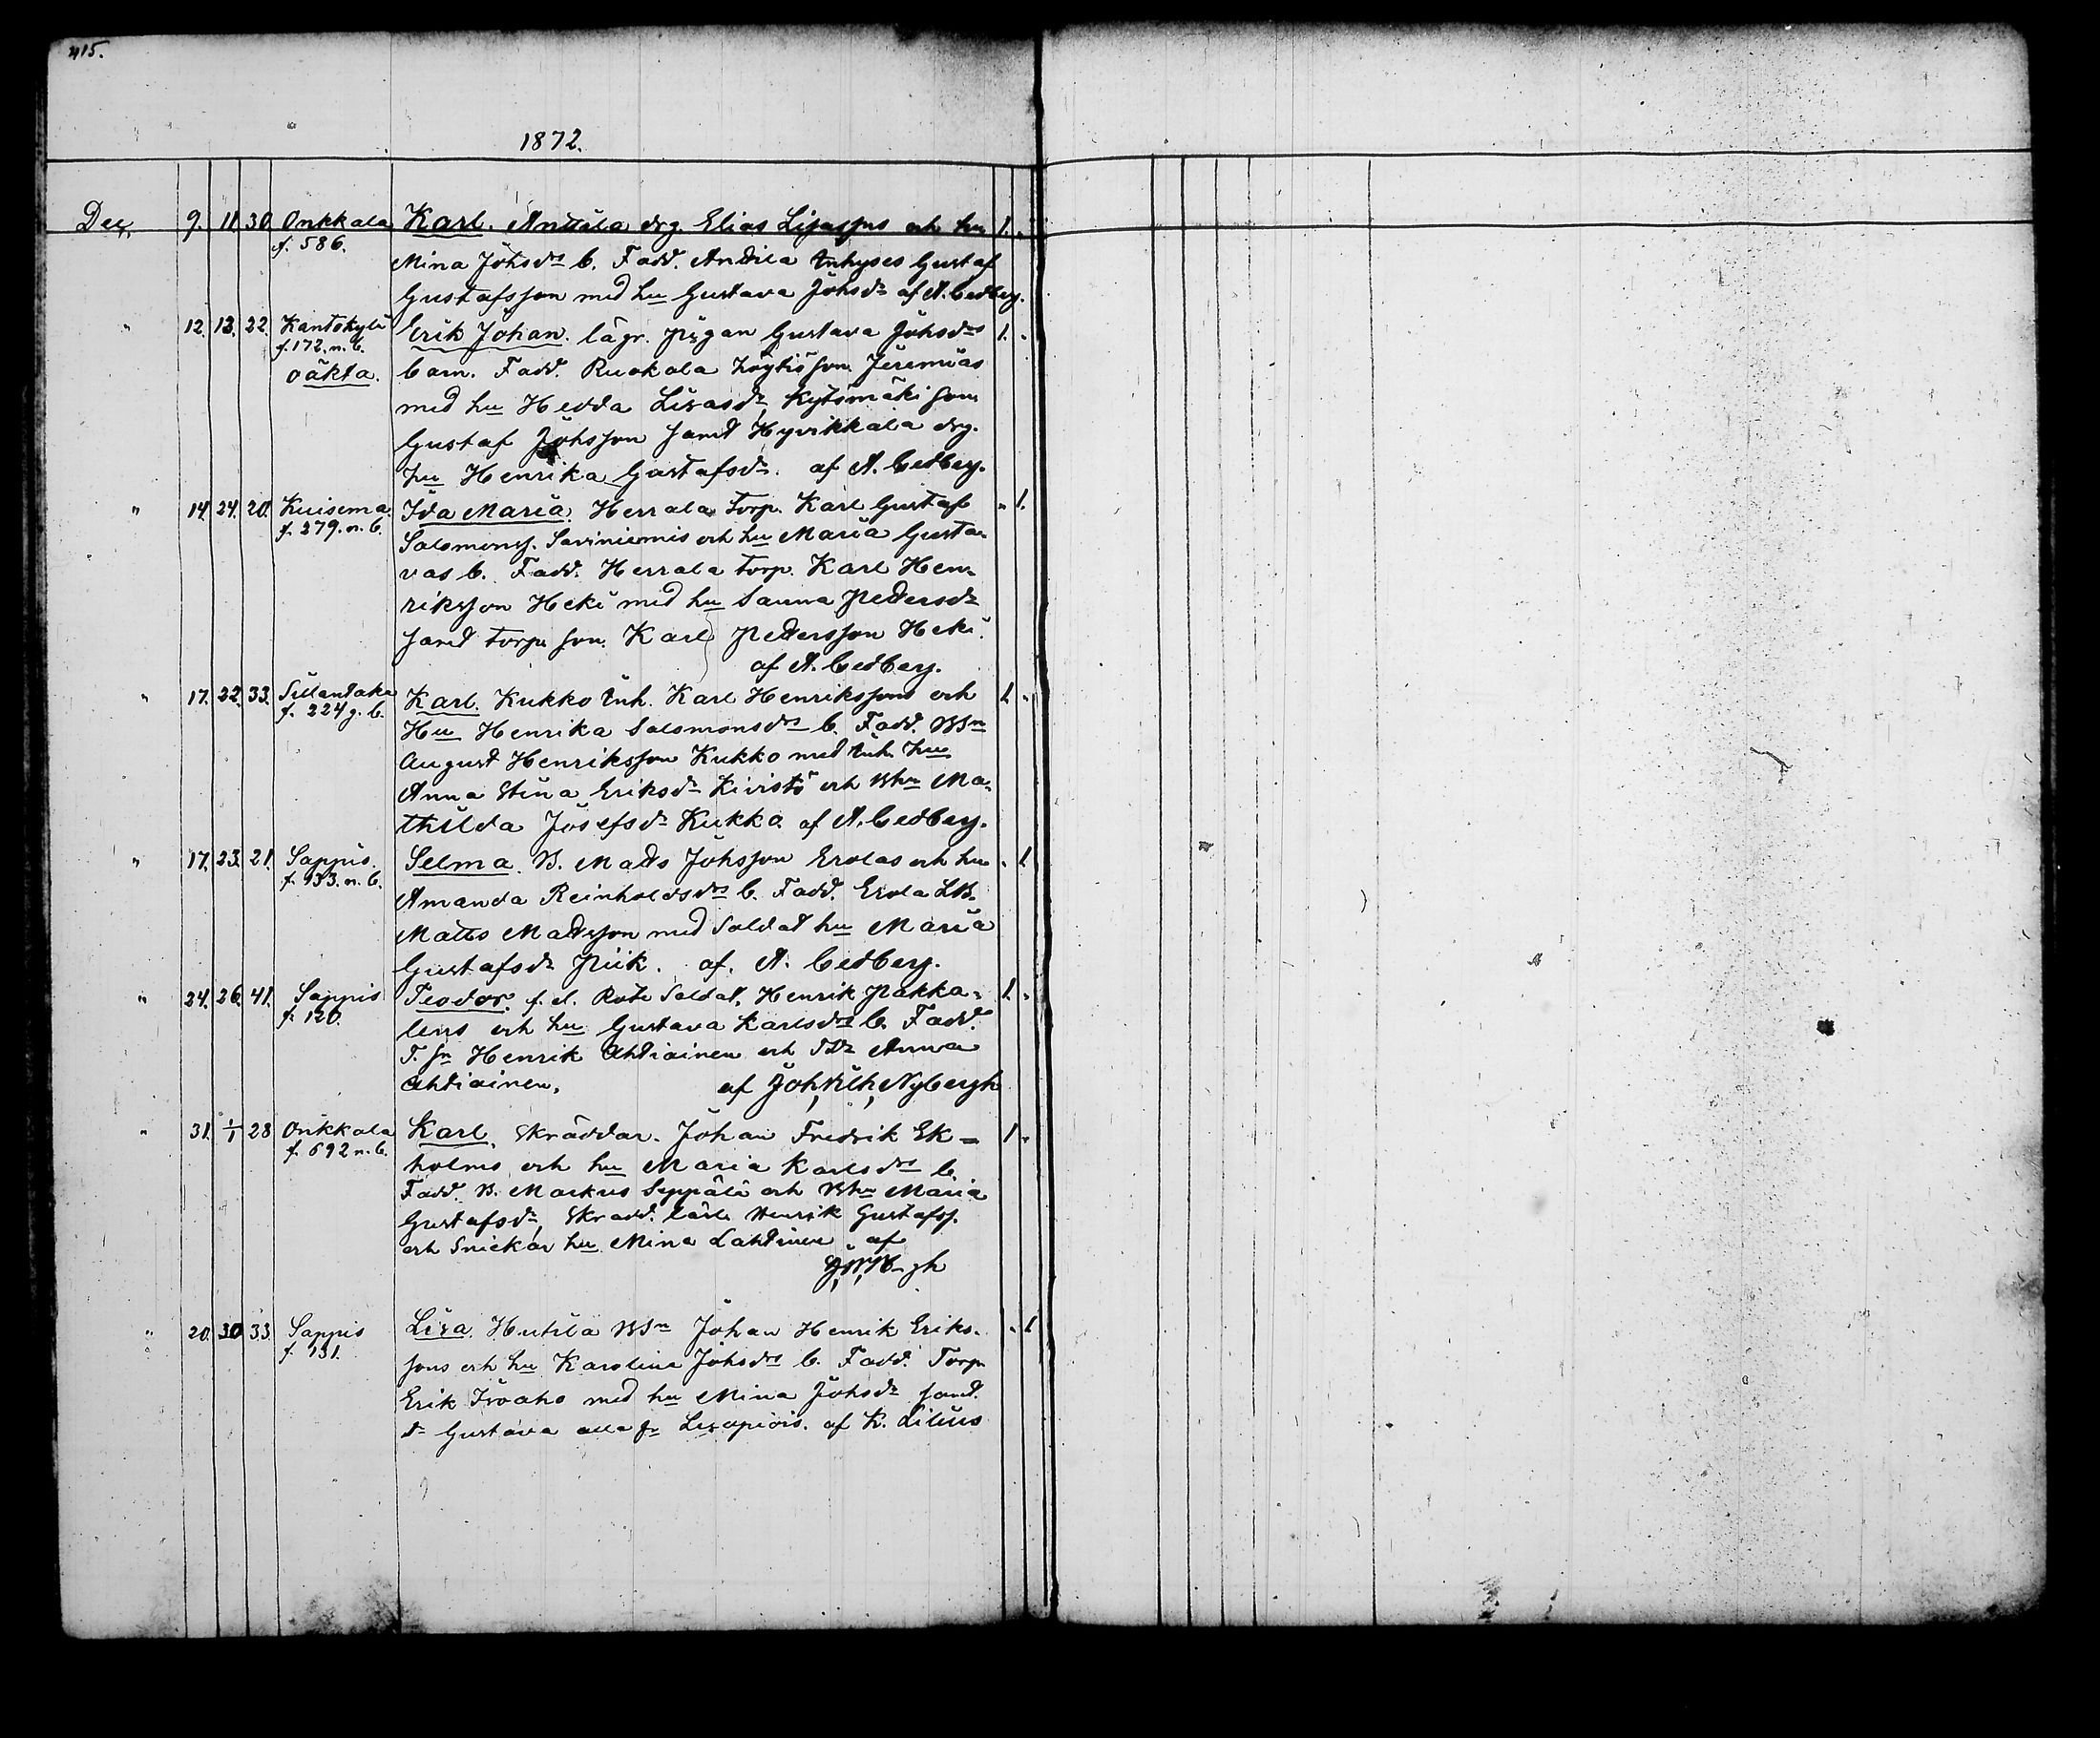 415.
1872.
Dec. 9. 11 30 Onkkala Karl. Anttila drg. Elias Lisasons och hu 1. "
f. 586. Mina Johsdrs b. Fadd. Andila Inhyses Gustaf
Gustafsson med hu Gustava Johsdr af A. Cedberg.
" 12. 13. 22. Kantokylä Erik Johan. lägr. pigan Gustava Johsdrs 1. "
f. 172. n. b. barn. Fadd. Ruokola son Jeremias
oäkta. med hu Hedda Lisasdr, Kytömäki son
Gustaf Johsson samt Hyvikkälä drg.
hu Henrika Gustafsdr. af A. Cedberg.
" 14. 24. 20. Kuisema Ida Maria. Herrala Torp. Karl Gustaf " 1.
f. 279. n. b. Salomons. Saviniemis och hu Maria Gusta-
vas b. Fadd. Herrala torp. Karl Hen-
riksson Heki med hu Sanna Pettersdr
samt torp. son. Karl Pettersson Heki.
af A. Cedberg.
" 17. 22. 33. Sillantaka Karl. Kukko Inh. Karl Henrikssons och 1. "
f. 224 g. b. Hu Henrika Salomonsdrs b. Fadd. BSn
August Henriksson Kukko med Inh. hu
Anna Stina Eriksdr Kivistö och Bhu Ma-
thilda Josefsdr Kukko af A. Cedberg.
" 17. 23. 21. Sappis. Selma. B. Mats Johsson Erolas och hu " 1
f. 133. n. b. Amanda Reinholdsdrs b. Fadd. Erola LB.
Matts Mattsson med Soldat hu Maria
Gustafsdr Piik. af. A. Cedberg.
" 24. 26. 41. Sappis Teodor. f. d. Rote Soldat, Henrik Pakka- 1. "
f. 120. lens och hu Gustava Karlsdrs b. Fadd.
T. sn Henrik Ahtiainen och TDr Anna
Ahtiainen, af Joh, Vilh, Nybergh
" 31. 1/1 28 Onkkala Karl, Skräddar. Johan Fredrik Ek- 1 "
f. 692 n. b. holms och hu Maria Karlsdrs b.
Fadd. B. Markus Seppälä och Bhu Maria
Gustafsdr, Skradd. lärl. Henrik Gustafss.
och Snickar hu Mina Lahtinen af
J, V, N-gh
" 20. 30 33. Sappis Lisa. Hutila BSn Johan Henrik Eriks- " 1
f. 131. sons och hu Karolina Johsdrs b. Fadd. Torp.
Erik Isoaho med hu Mina Johsdr samt.
dr Gustava alla fr Lisopiois. af K. Lilius